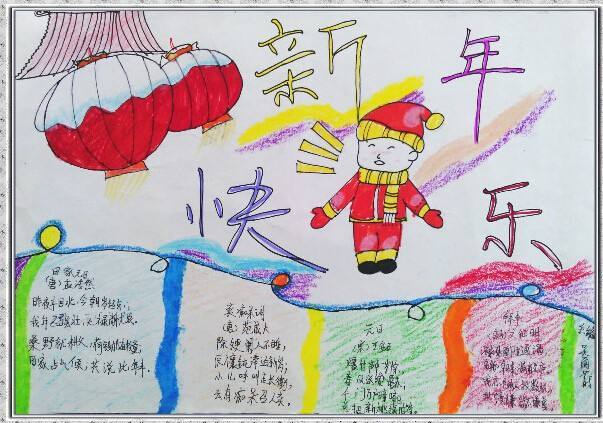 新年
快乐
田家元日
(唐)孟浩然
昨夜斗回北,今朝岁起东;
我年已强仕,无禄尚忧农。
桑野就耕父,荷锄随牧童;
田家占气候,共说此年丰。
卖痴呆词
(唐)范成大
除夕更阑人不睡,
厌禳钝滞迎新岁;
小儿呼叫走长街,
云有痴呆召人卖。
元日
(宋)王安石
爆竹声中一岁除,
春风送暖入屠苏;
千门万户曈曈日,
总把新桃换旧符。